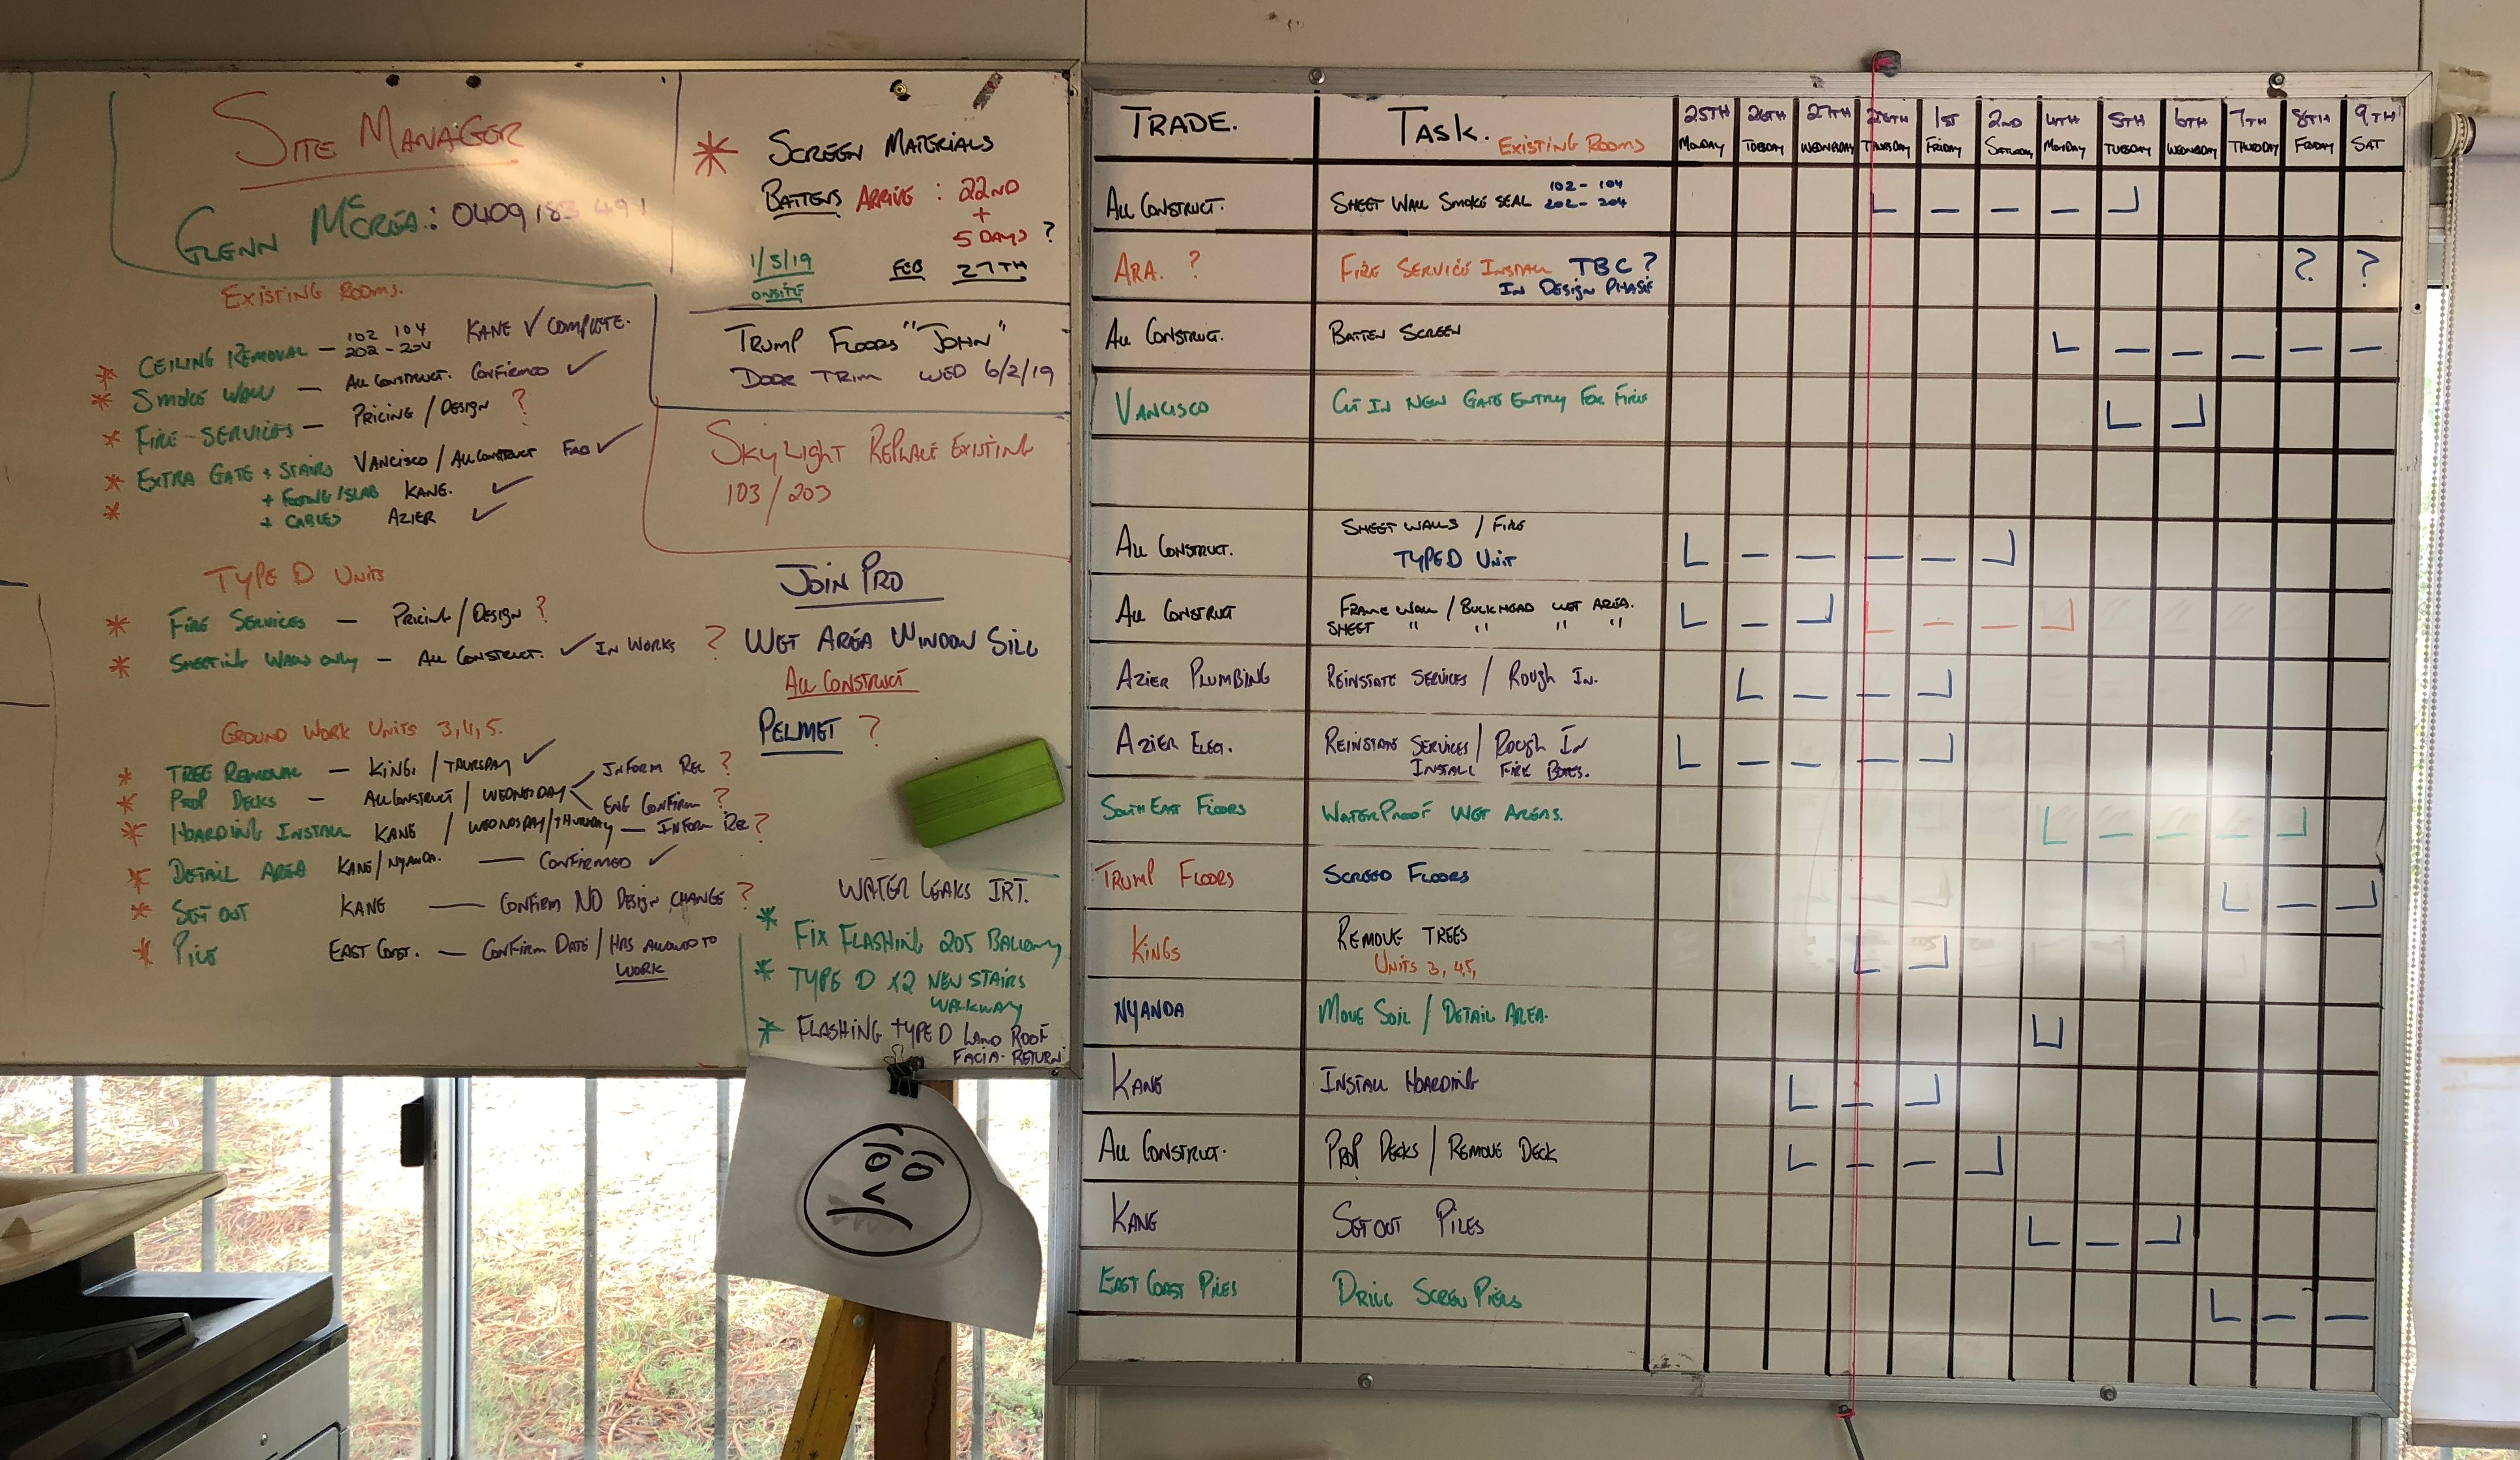 SITE MANAGER
GLENN McCREA: 0409 183 491
EXISTING ROOMS.
* CEILING REMOVAL — 102 104 KANE ✓ COMPLETE.
202 - 204
* SMOKE WALL — ALL CONSTRUCT. CONFIRMED ✓
* FIRE-SERVICES — PRICING / DESIGN ?
* EXTRA GATE + STAIRS VANCISCO / ALL CONSTRUCT FAB ✓
* + FOOTING/SLAB KANE. ✓
+ CABLES AZIER ✓
TYPE D UNITS
* FIRE SERVICES — PRICING / DESIGN ?
* SHEETING WALLS ONLY — ALL CONSTRUCT. ✓ IN WORKS
GROUND WORK UNITS 3, 4, 5.
* TREE REMOVAL — KING. / THURSDAY ✓
* PROP DECKS — ALL CONSTRUCT / WEDNESDAY INFORM REC ?
ENG CONFIRM ?
* HOARDING INSTALL KANE / WEDNSDAY/THURSDAY — INFORM REC ?
* DETAIL AREA KANE/NYANDA. — CONFIRMED ✓
* SET OUT KANE — CONFIRM NO DESIGN CHANGE ?
* PILE EAST COAST. — CONFIRM DATE / HRS ALLOWED TO
WORK
* SCREEN MATERIALS
BATTENS ARRIVE : 22ND
+
5 DAYS ?
1/3/19 FEB 27TH
ONSITE
TRUMP FLOORS "JOHN"
DOOR TRIM WED 6/2/19
SKYLIGHT REPLACE EXISTING
103 / 203
JOIN PRO
? WET AREA WINDOW SILL
ALL CONSTRUCT
PELMET ?
WATER LEAKS IRT.
* FIX FLASHING 205 BALCONY
* TYPE D x2 NEW STAIRS
WALKWAY
* FLASHING TYPE D LAND ROOF
FACIA-RETURN.
TRADE. TASK. EXISTING ROOMS 25TH 26TH 27TH 28TH 1ST 2ND 4TH 5TH 6TH 7TH 8TH 9TH
MONDAY TUESDAY WEDNESDAY THURSDAY FRIDAY SATURDAY MONDAY TUESDAY WEDNESDAY THURSDAY FRIDAY SAT
ALL CONSTRUCT. SHEET WALL SMOKE SEAL 102 - 104
202 - 204
ARA. ? FIRE SERVICE INSTALL TBC ? ? ?
IN DESIGN PHASE
ALL CONSTRUCT. BATTEN SCREEN
VANCISCO CUT IN NEW GATE ENTRY FOR FIRE
ALL CONSTRUCT. SHEET WALLS / FIRE
TYPE D UNIT
ALL CONSTRUCT FRAME WALL / BULKHEAD WET AREA.
SHEET " " " "
AZIER PLUMBING REINSTATE SERVICES / ROUGH IN.
AZIER ELEC. REINSTATE SERVICES / ROUGH IN
INSTALL FIRE BOXES.
SOUTH EAST FLOORS WATERPROOF WET AREAS.
TRUMP FLOORS SCREED FLOORS
KINGS REMOVE TREES
UNITS 3, 4,5,
NYANDA MOVE SOIL / DETAIL AREA.
KANE INSTALL HOARDING
ALL CONSTRUCT. PROP DECKS / REMOVE DECK
KANE SET OUT PILES
EAST COAST PILES DRILL SCREW PIERS